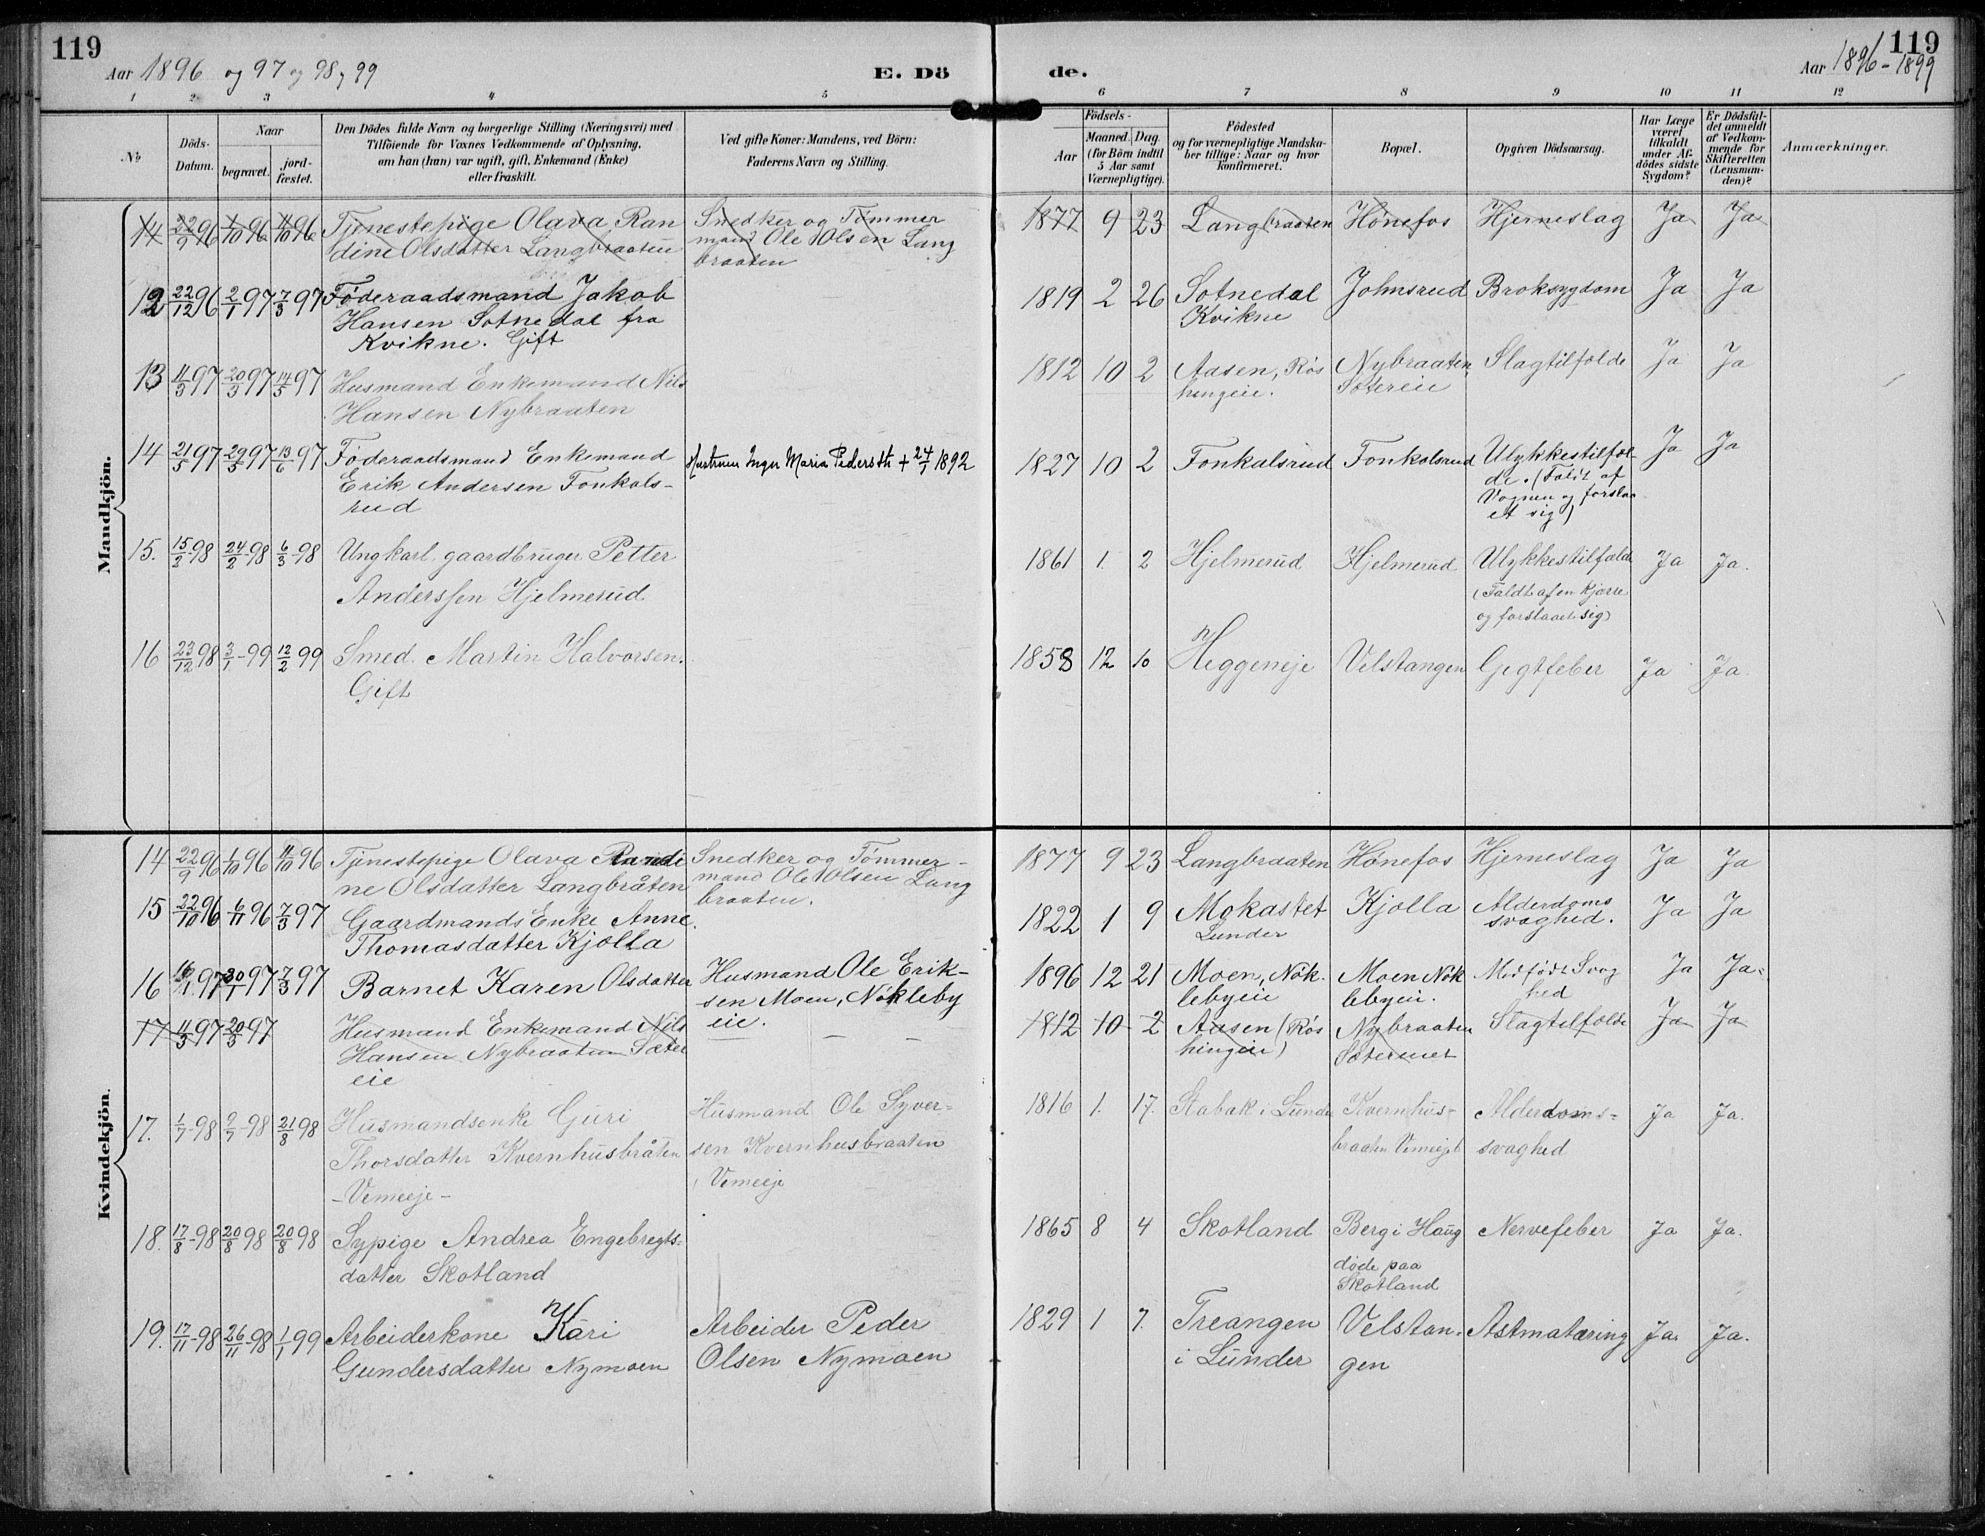 119
Aar 1896 og 97 og 98 og 99
E. Dö
de.
119
Aar 1896-1899
1 2 3 4 5 6 7 8 9 10 11 12
No
Döds-
Datum.
Naar
begravet.
jord-
fæstet.
Den Dödes fulde Navn og borgerlige Stilling (Næringsvei) med
Tilföiende for Voxnes Vedkommende af Oplysning,
om han (hun) var ugift, gift, Enkemand (Enke)
eller fraskilt.
Ved gifte Koner: Mandens, ved Börn:
Faderens Navn og Stilling.
Födsels-
Aar
Maaned. Dag.
(for Börn indtil
5 Aar samt
Værnepligtige).
Födested
og for værnepligtige Mandska-
ber tillige: Naar og hvor
konfirmeret.
Bopæl.
Opgiven Dödsaarsag.
Har Læge
været
tilkaldt
under Af-
dödes sidste
Sygdom?
Er Dödsfal-
det anmeldt
af Vedkom-
mende for
Skifteretten
(Lensman-
den)?
Anmærkninger.
Mandkjön.
14 22/9 96 1/10 96 11/10 96 Tjenestepige Olava Ran
dine Olsdatter Langbraaten
Snedker og Tømmer
mand Ole Olsen Lang
braaten
1877 9 23 Langbraaten Hønefos Hjerneslag Ja Ja
12 22/12 96 2/1 97 7/3 97 Føderaadsmand Jakob
Hansen Sotnedal fra
Kvikne. Gift
1819 2 26 Sotnedal
Kvikne
Johnsrud Broksygdom Ja Ja
13 11/3 97 20/3 97 14/5 97 Husmand Enkemand Nils
Hansen Nybraaten
1812 10 2 Aasen, Røs
hingeie.
Nybraaten
Sætereie
Slagtilfælde Ja Ja
14 21/5 97 29/5 97 13/6 97 Føderaadsmand Enkemand
Erik Andersen Fonkals-
rud
Hustruen Inger Maria Pedersdtr + 24/1 1892
1827 10 2 Fonkalsrud Fonkalsrud Ulykkestilfæl
de. (Faldt af
Vognen og forslaa
et sig)
Ja Ja
15. 15/2-98 24/2 98 6/3-98 Ungkarl, gaardbruger Petter
Anderssen Hjelmerud
1861 1. 2 Hjelmerud Hjelmerud Ulykkestilfælde
(Faldt af en Kjærre
og forslaaet sig)
Ja Ja.
16 23/12 98 3/1-99 12/2 99 Smed. Martin Halvorsen.
Gift
1858 12 10 Heggeneje Velstangen Gigtfeber Ja Ja.
Kvindekjön.
14 22/9 96 1/10 96 11/10 96 Tjenestepige Olava Randi
ne Olsdatter Langbråten
Snedker og Tømmer-
mand Ole Olsen Lang
braaten.
1877 9 23 Langbraaten Hønefos Hjerneslag Ja Ja
15 22/10 96 6/11 96 7/3 97 Gaardmands Enke Anne
Thomasdatter Kjølla
1822 1 9 Mokastet
Lunder
Kjolla Alderdoms
svaghed.
Ja Ja
16 16/1 97 30/1 97 7/3 97 Barnet Karen Olsdatter
Husmand Ole Erik-
sen Moen, Nökleby
eie.
1896 12 21 Moen, Nök-
lebyeie
Moen Nök
lebyeie.
Medfødt Svag
hed
Ja Ja
17 11/3 97 20/3 97 Husmand Enkemand Nils
Hansen Nybraaten Sæter
eie
1812 10 2 Aasen (Røs
hingeie)
Nybraaten
Slagtilfælde Ja Ja
17. 1/7-98 9/7-98 21/8 98 Husmandsenke Guri
Thorsdatter Kvernhusbråten
-Vemeeje-
Husmand Ole Syver-
sen Kvernhusbraaten
Vemeeje
1816 1. 17. Stabak i Lunder Kvernhus-
braaten
Alderdoms-
svaghed
Ja Ja.
18. 17/8-98 20/8 98 20/8 98 Sypige Andrea Engebregts-
datter Skotland
1865 8 4 Skotland Berg i Haug
døde paa
Skotland
Nervefeber Ja Ja.
19. 17/11-98 26/11-98 1/1 99 Arbeiderkone Kari
Gundersdatter Nymoen
Arbeider Peder
Olsen Nymoen
1829 1 7. Treangen
i Lunder
Velstan-
gen
Astmatæring Ja. Ja.